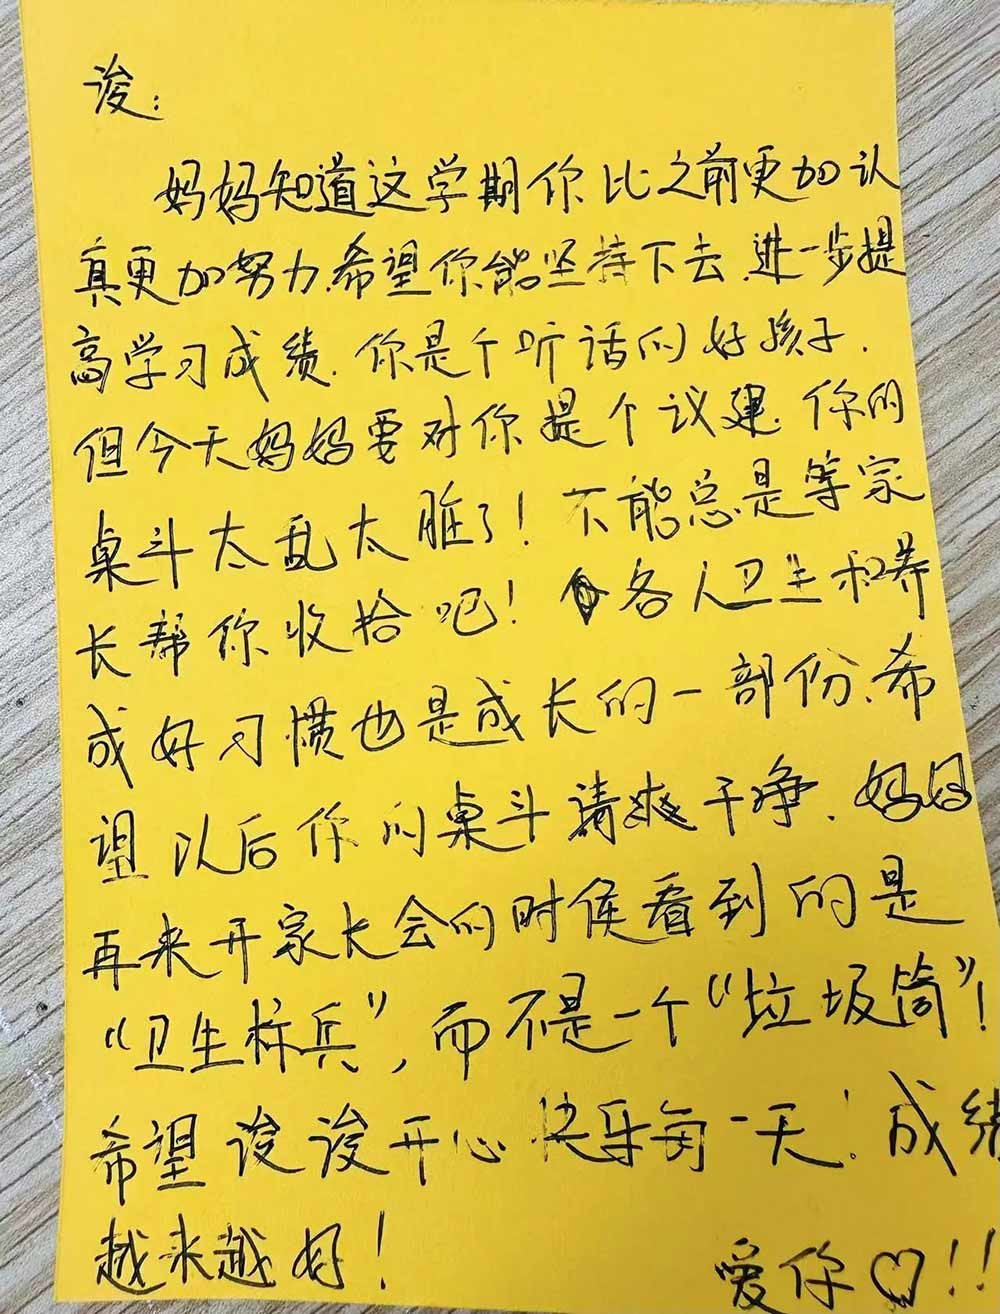 浚：
妈妈知道这学期你比之前更加认
真更加努力.希望你能坚持下去.进一步提
高学习成绩.你是个听话的好孩子.
但今天妈妈要对你提个议建.你的
桌斗太乱太脏了！不能总是等家
长帮你收拾吧！各人卫生和养
成好习惯也是成长的一部份.希
望以后你的桌斗清爽干净.妈妈
再来开家长会的时候看到的是
“卫生标兵”，而不是一个“垃圾筒”！
希望浚浚开心快乐每一天！成绩
越来越好！
爱你♡!!